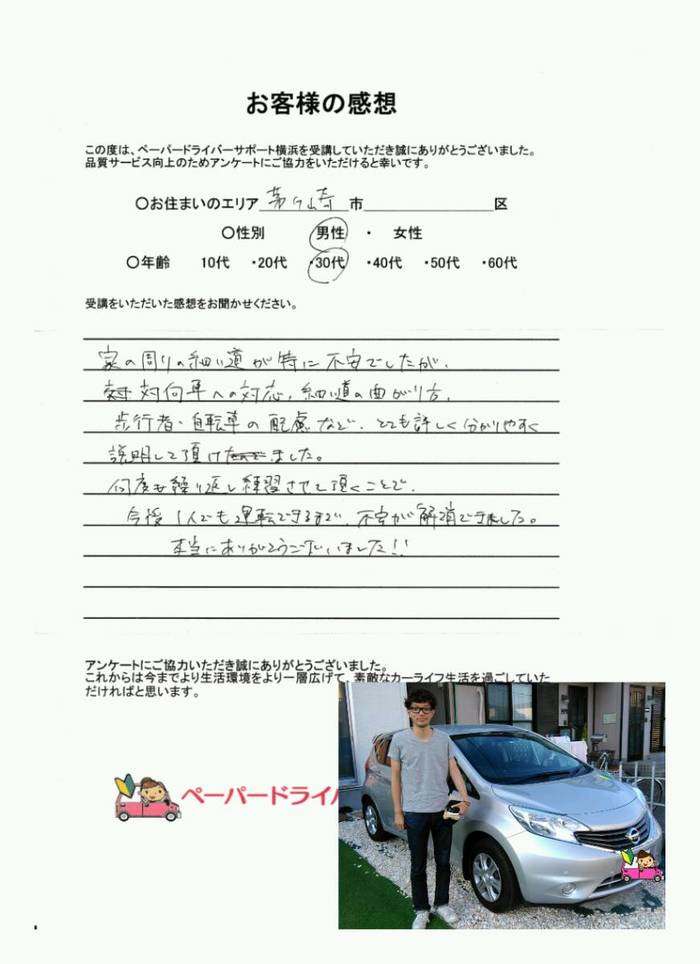 お客様の感想
この度は、ペーパードライバーサポート横浜を受講していただき誠にありがとうございました。
品質サービス向上のためアンケートにご協力をいただけると幸いです。
〇お住まいのエリア 茅ヶ崎 市 区
〇性別 男性 ・ 女性
〇年齢 10代 ・20代 ・30代 ・40代 ・50代 ・60代
受講をいただいた感想をお聞かせください。
家の周りの細い道が特に不安でしたが、
対向車への対応、細い道の曲がり方、
歩行者・自転車の配慮など、とても詳しく分かりやすく
説明して頂けました。
何度も繰り返し練習させて頂くことで、
今後1人でも運転できるまで、不安が解消できました。
本当にありがとうございました!!
アンケートにご協力いただき誠にありがとうございました。
これからは今までより生活環境をより一層広げて、素敵なカーライフ生活を過ごしていた
だければと思います。
ペーパードライバ